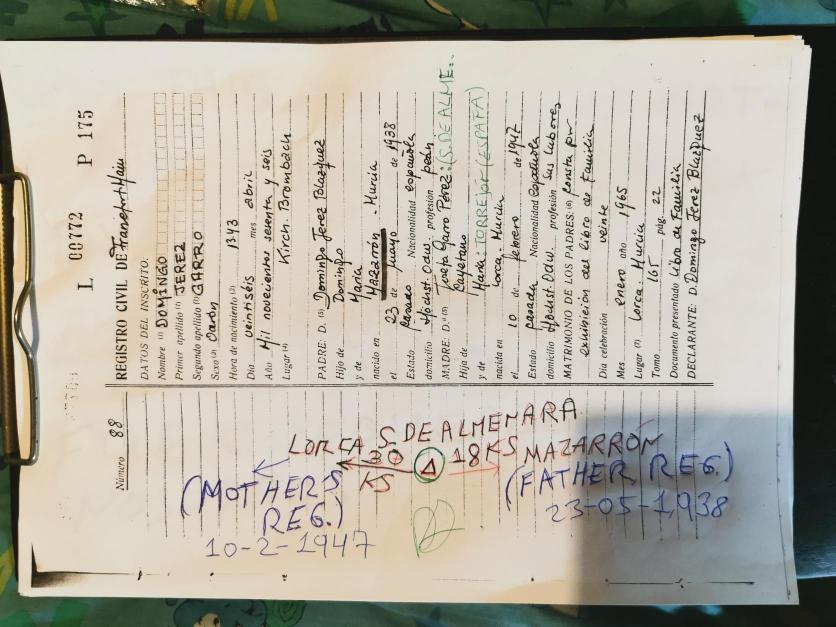 L 00772 P 175
Número 88
REGISTRO CIVIL DE Francfort/Main
DATOS DEL INSCRITO:
Nombre (1) DOMINGO
Primer apellido (1) JEREZ
Segundo apellido (1) GARRO
Sexo (2) Varón
Hora de nacimiento (3) 13.43
Día veintiséis mes abril
Año Mil novecientos sesenta y seis
Lugar (4) Kirch. Brombach
PADRE: D. (5) Domingo Jerez Blazquez
Hijo de Domingo
y de María
nacido en Mazarrón - Murcia
el 23 de mayo de 1938
Estado casado Nacionalidad española
domicilio Höchst. Odw. profesión peón
MADRE: D.ª (5) Josefa Garro Pérez: (S. DE ALME:.
Hija de Cayetano
y de María: TORREJON (ESPAÑA)
nacida en Lorca, Murcia
el 10 de febrero de 1947
Estado casada Nacionalidad española
domicilio Höchst. Odw. profesión sus labores
MATRIMONIO DE LOS PADRES: (6) Consta por
exhibición del Libro de Familia
Día celebración veinte
Mes enero año 1965
Lugar (7) Lorca - Murcia
Tomo 165 pág. 22
Documento presentado Libro de Familia
DECLARANTE: D. Domingo Jerez Blazquez
LORCA S. DE ALMENARA
30 KS 18 KS MAZARRÓN
(MOTHERS REG.)
10-2-1947
(FATHER REG.)
23-05-1938